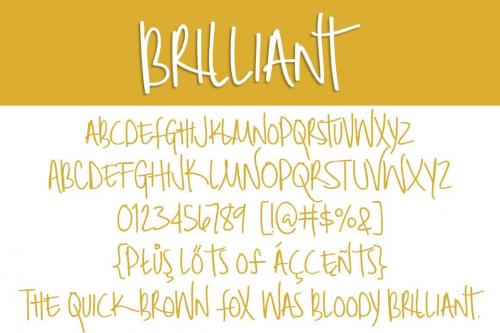 BRILLIANT
ABCDEFGHIJKLMNOPQRSTUVWXYZ
ABCDEFGHIJKLMNOPQRSTUVWXYZ
0123456789 [!@#$%&]
{PŁŮŞ LŐTS OF ÁÇCĘÑTS}
THE QUICK BROWN FOX WAS BLOODY BRILLIANT.